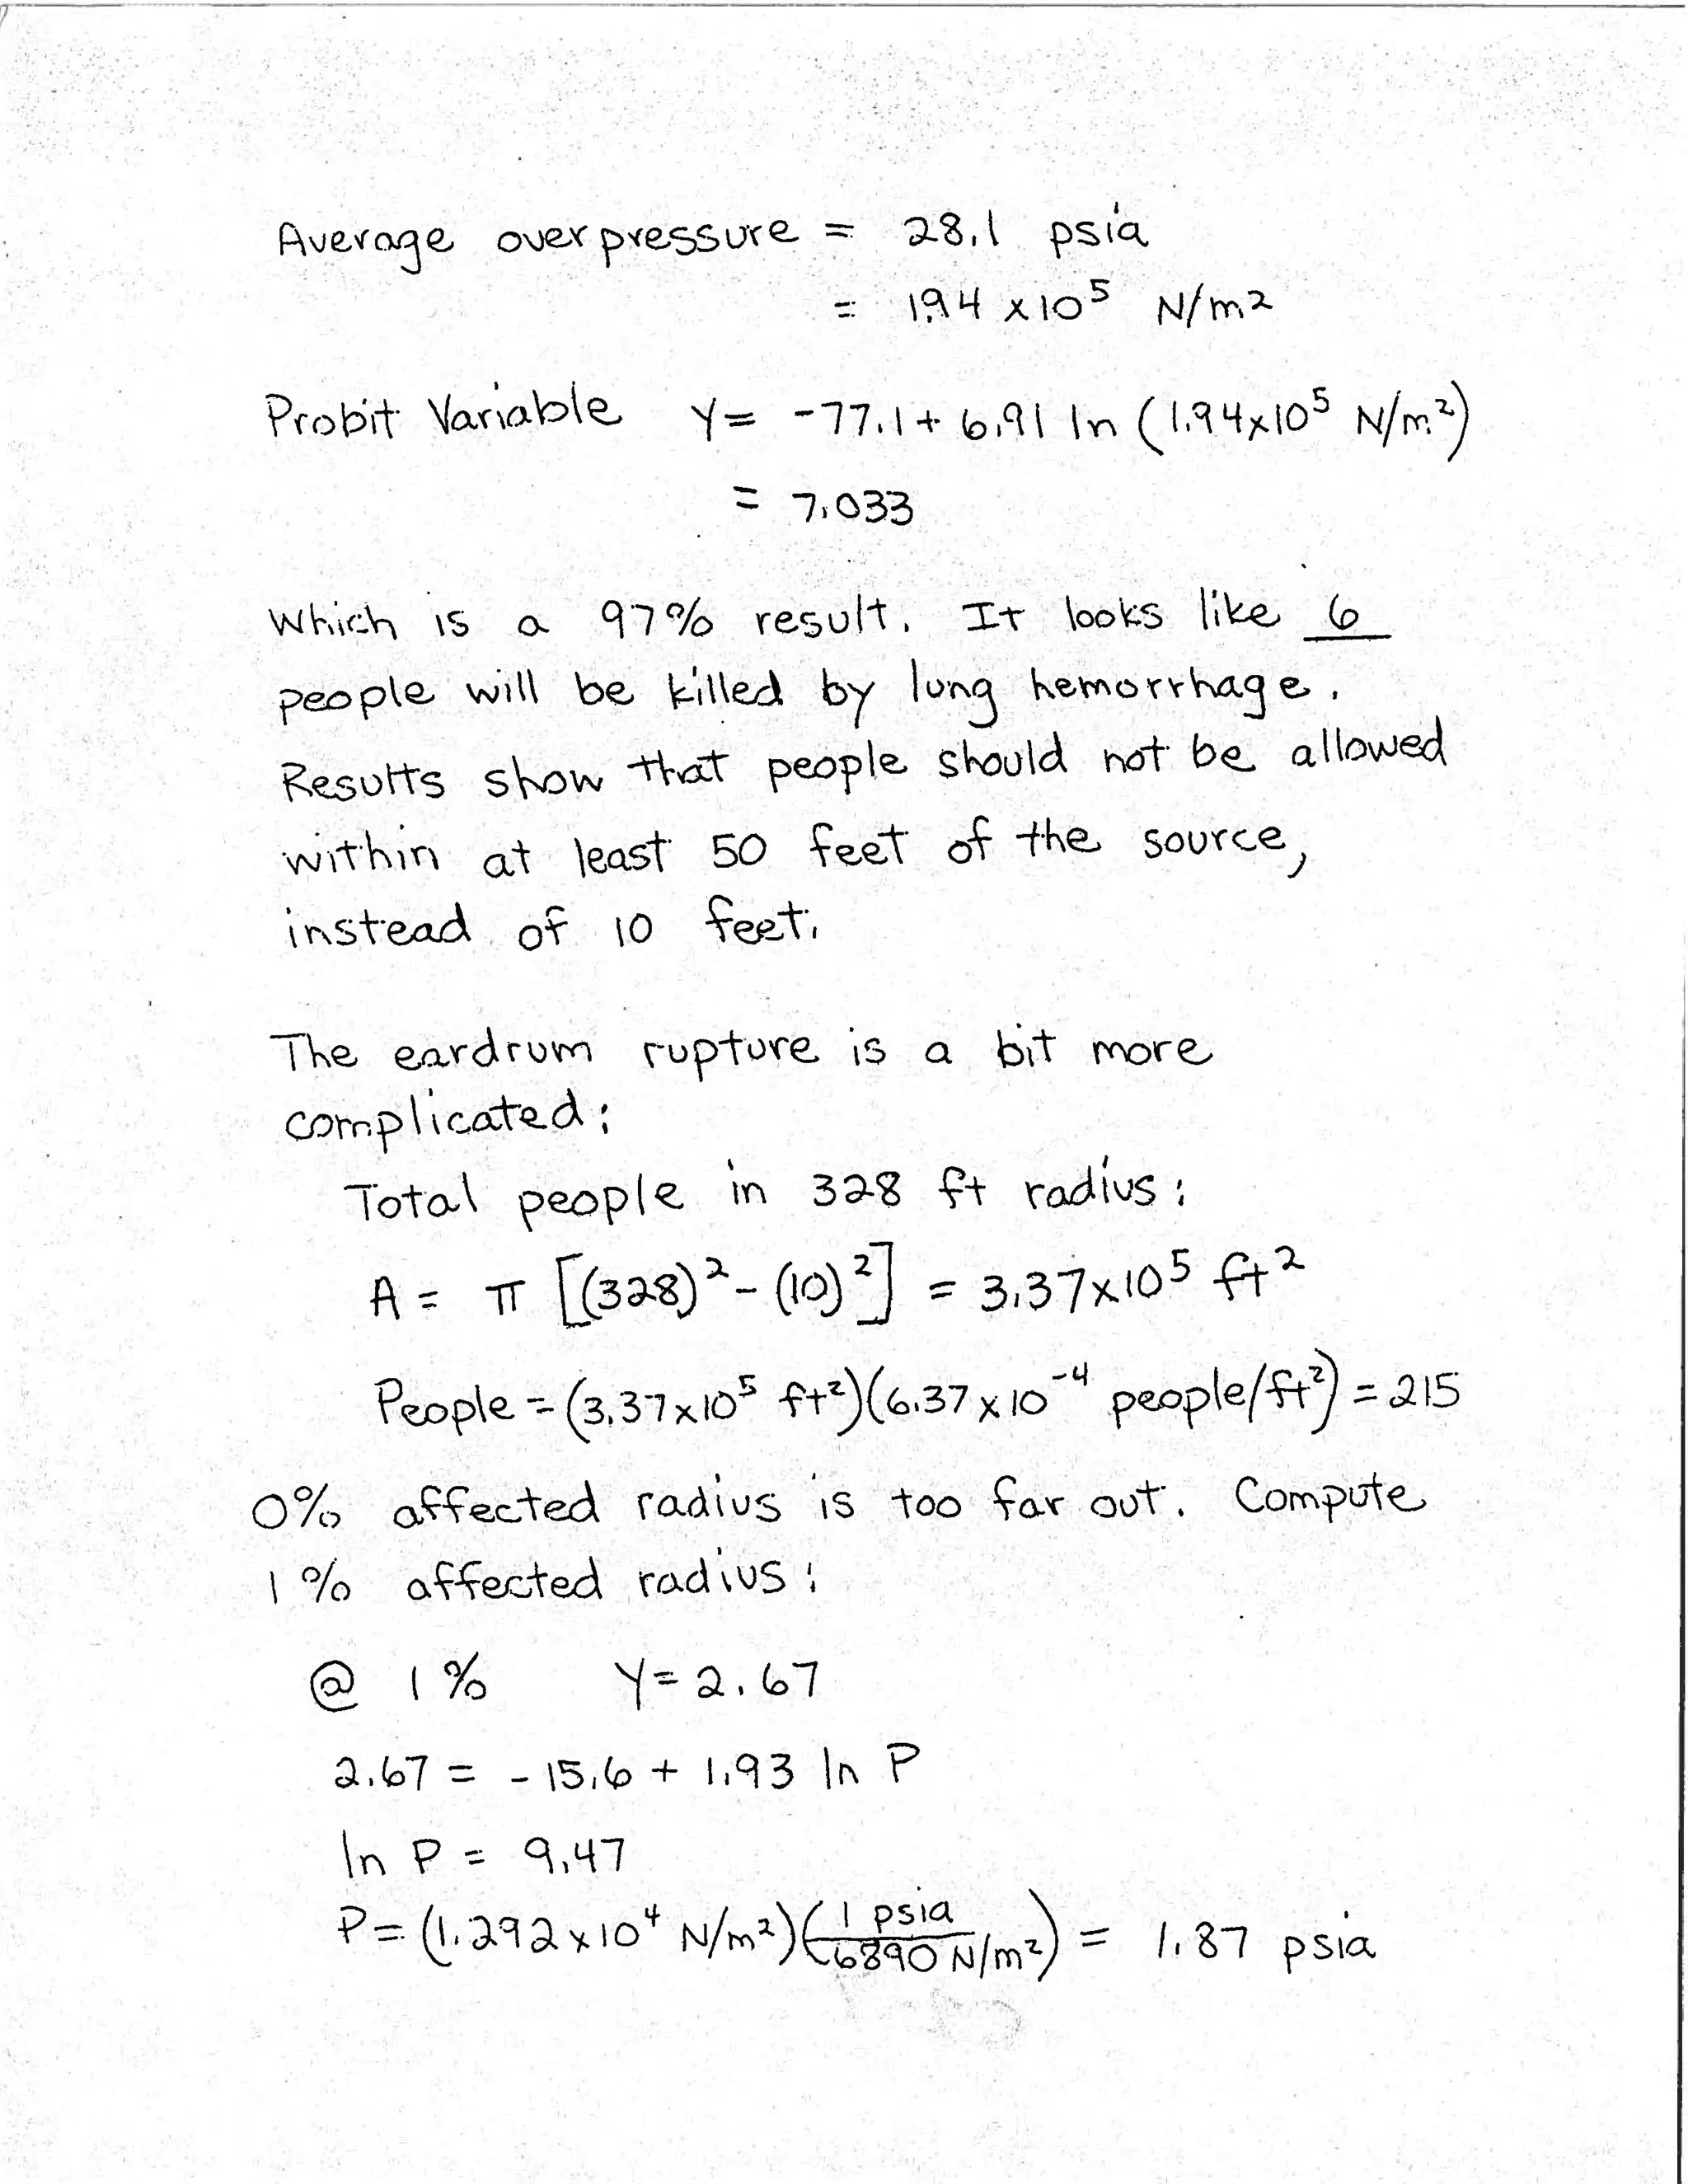 Average overpressure = 28.1 psia
= 1.94 x 10⁵ N/m²
Probit Variable Y = -77.1 + 6.91 ln (1.94x10⁵ N/m²)
= 7.033
Which is a 97% result. It looks like 6
people will be killed by lung hemorrhage.
Results show that people should not be allowed
within at least 50 feet of the source,
instead of 10 feet.
The eardrum rupture is a bit more
complicated:
Total people in 328 ft radius:
A = π [(328)² - (10)²] = 3.37x10⁵ ft²
People = (3.37x10⁵ ft²)(6.37 x 10⁻⁴ people/ft²) = 215
0% affected radius is too far out. Compute
1% affected radius:
@ 1% Y = 2.67
2.67 = -15.6 + 1.93 ln P
ln P = 9.47
P = (1.292 x 10⁴ N/m²)(1 psia / 6890 N/m²) = 1.87 psia